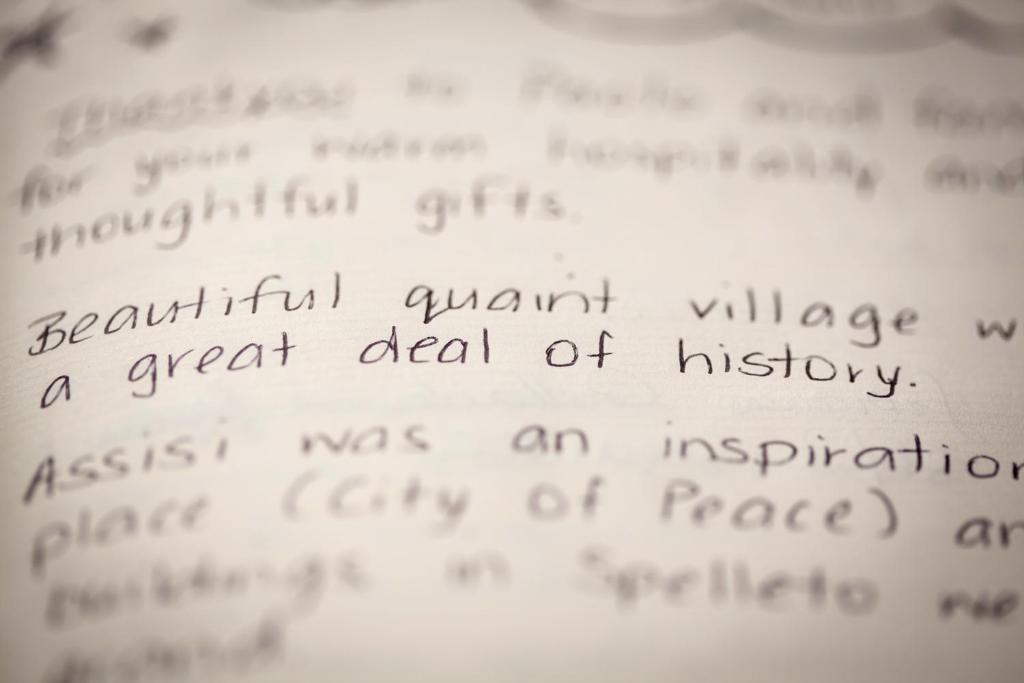 to
for your warm hospitality and
thoughtful gifts.
Beautiful quaint village w
a great deal of history.
Assisi was an inspiration
place (City of Peace) an
buildings in Spelleto